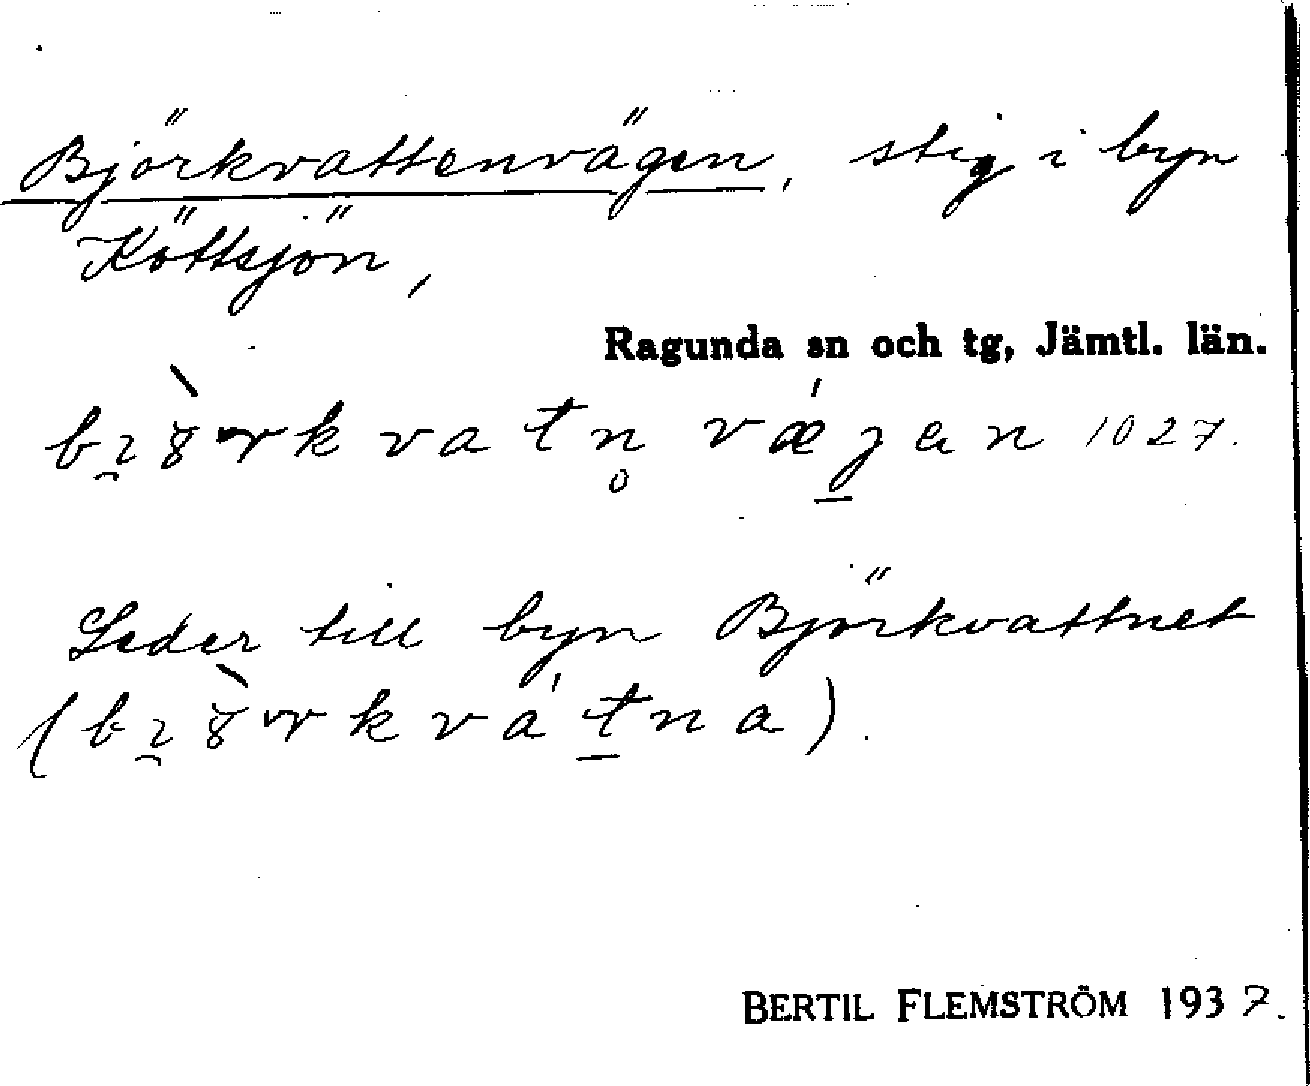 Björkvattenvägen, stig i byn
Köttsjön,
Ragunda sn och tg, Jämtl. län.
1027.
Leder till byn Björkvattnet
BERTIL FLEMSTRÖM 1937.